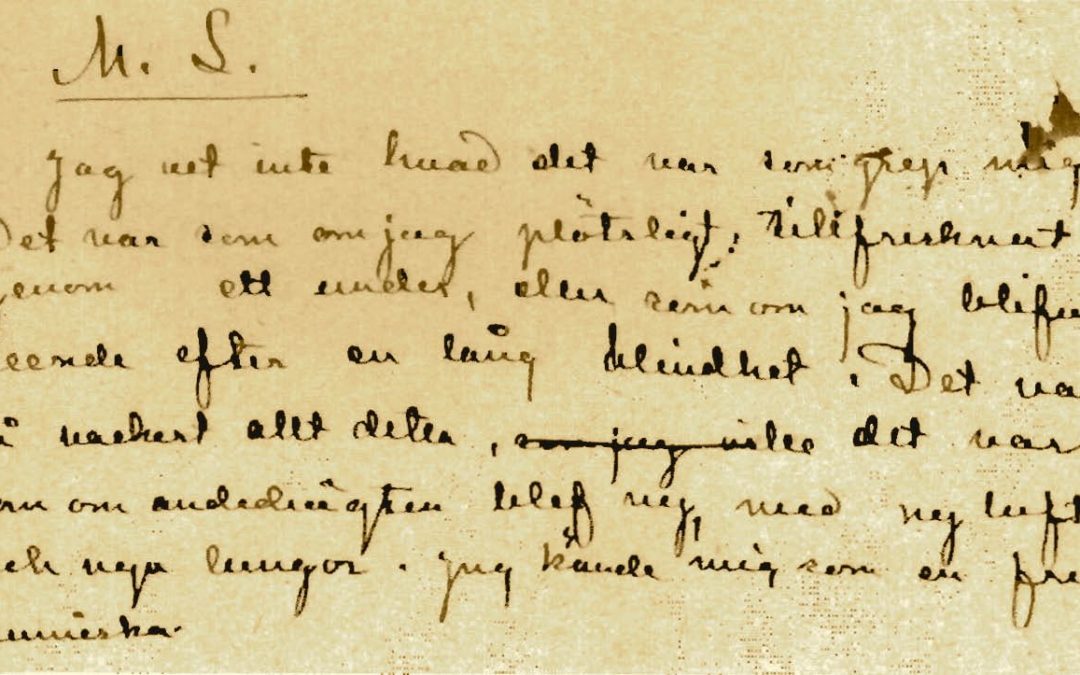 M. S.
Jag vet inte hvad det var som grep mig
Det var som om jag plötsligt, tillfrisknat
genom ett under, eller som om jag blifv
eende efter en lång blindhet. Det va
å vackert allt detta, som jag inte det var
om om andedrägten blef ny, med ny luft
ch nya lungor. Jag kände mig som en fri
enniska.